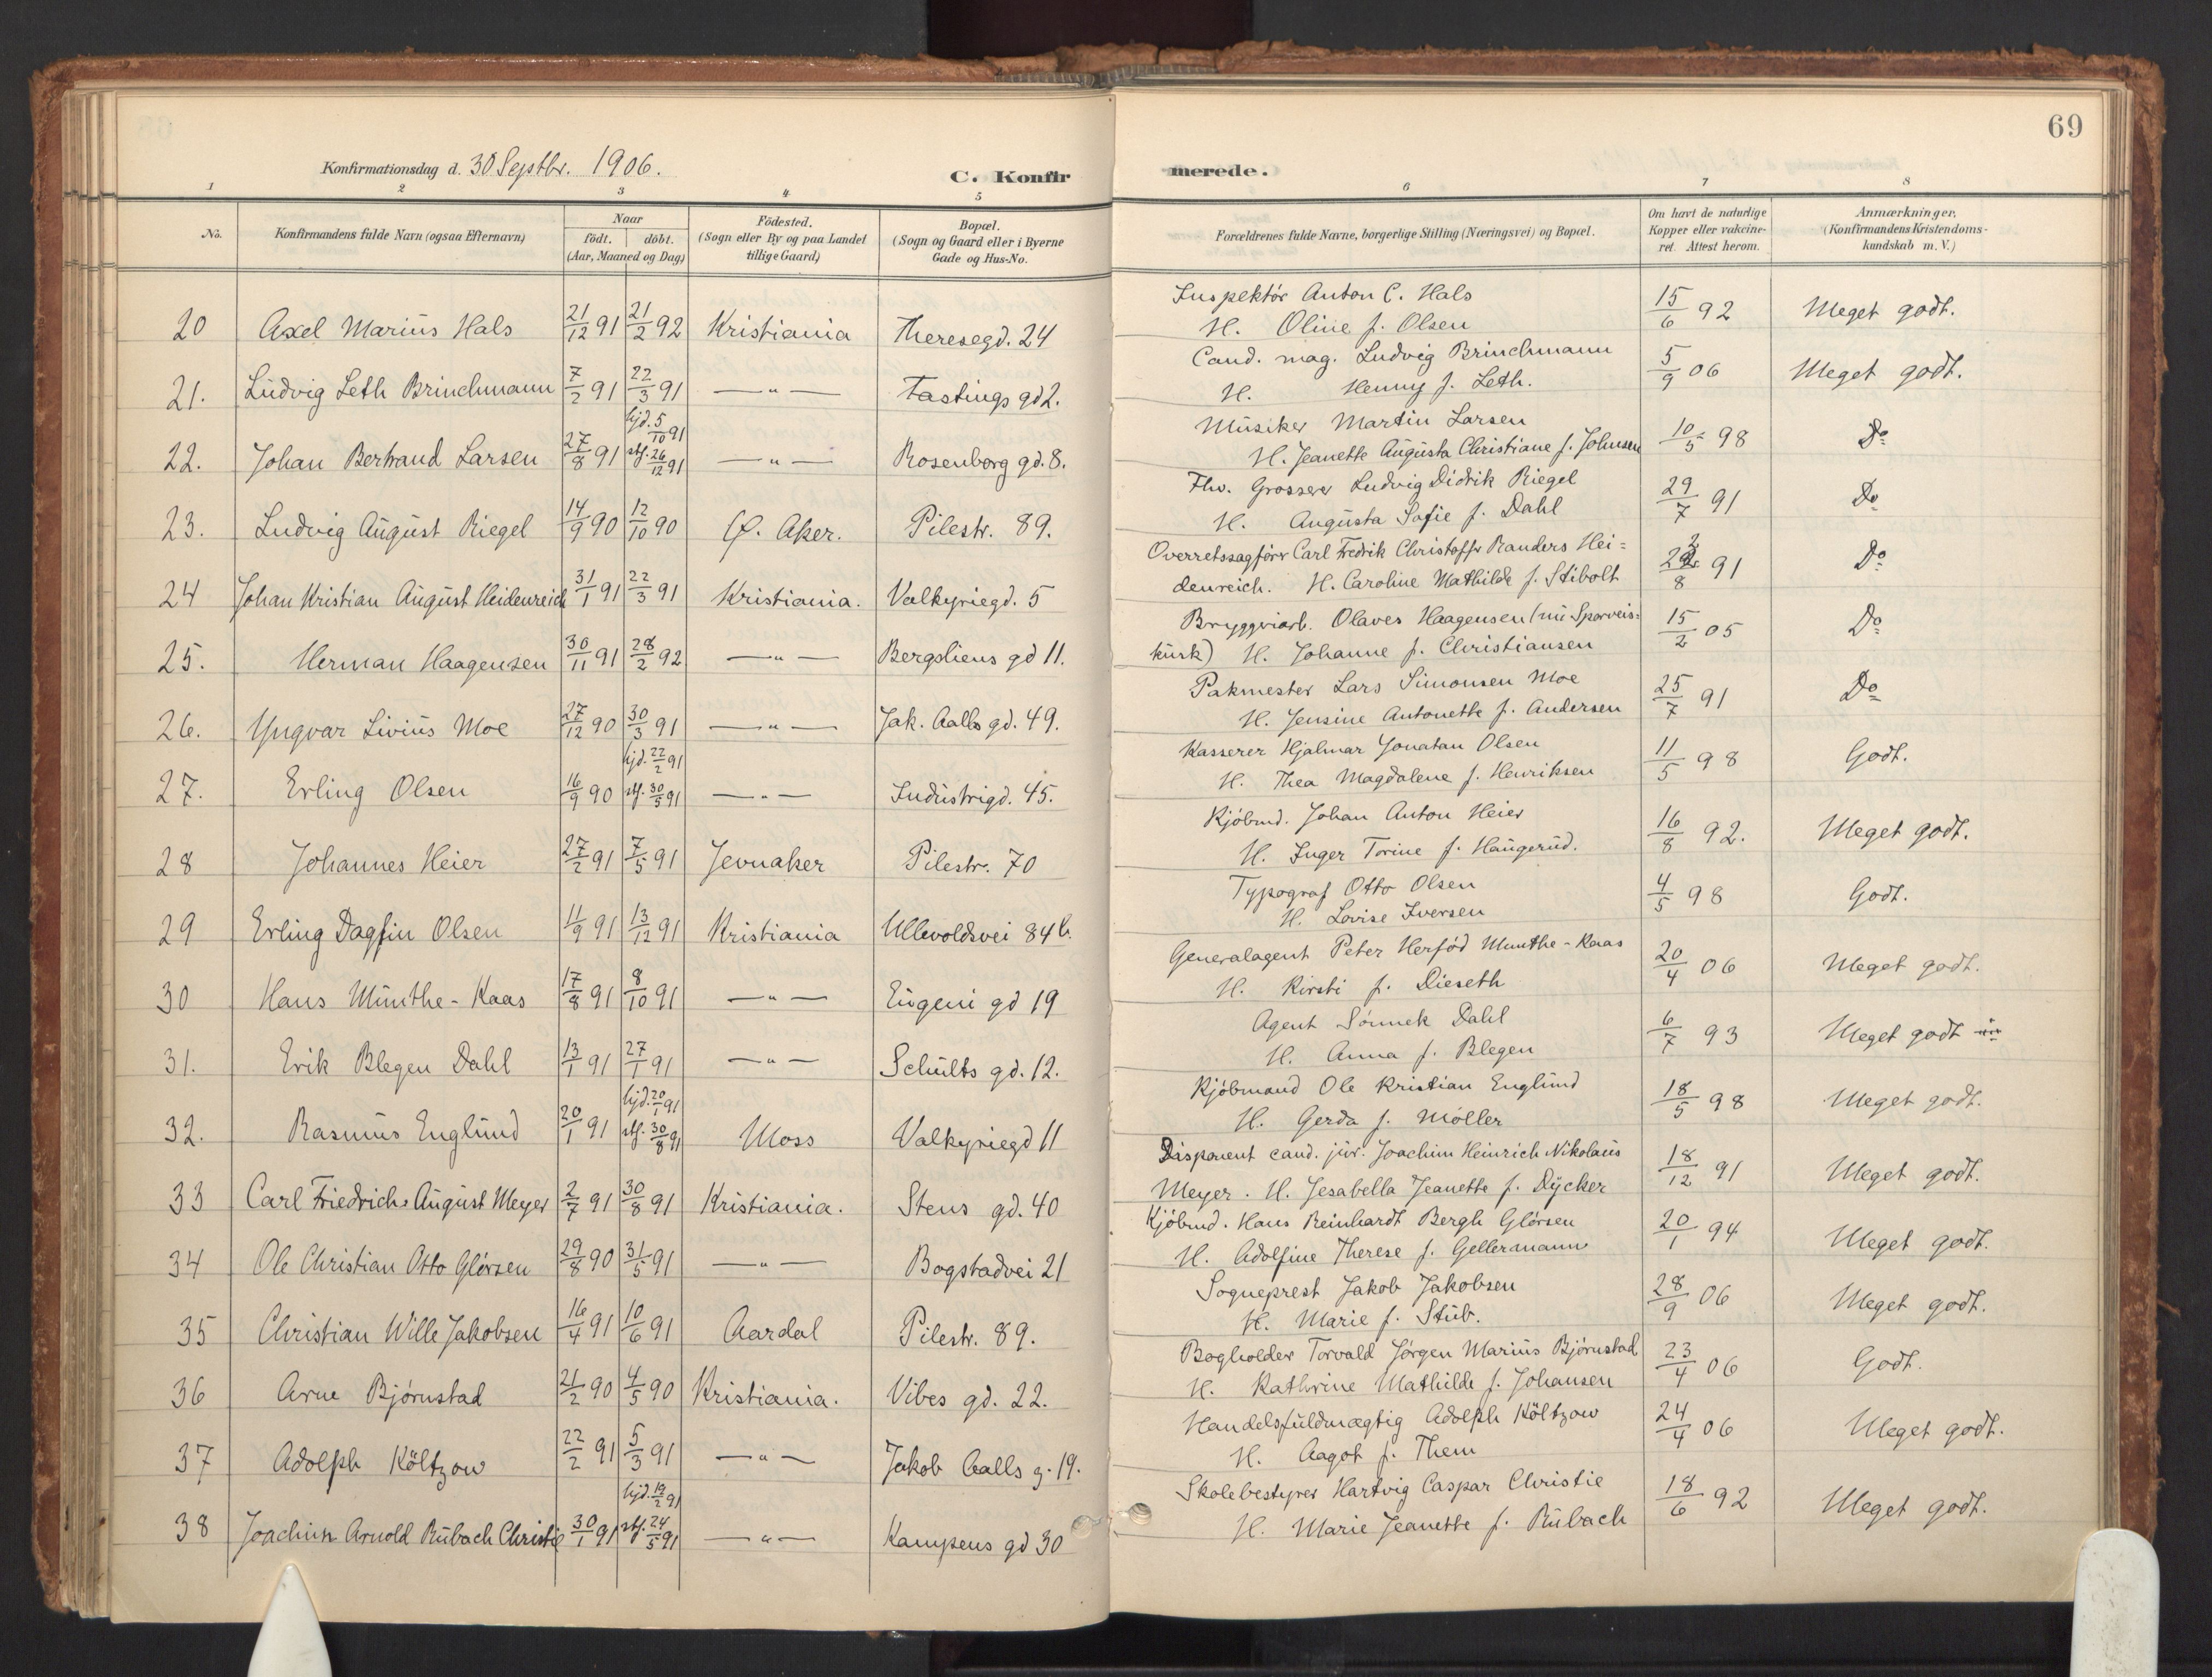 69
Konfirmationsdag d. 30 Septbr. 1906.
C. Konfirmerede.
1 2 3 4 5 6 7 8
No.
Konfirmandens fulde Navn (ogsaa Efternavn)
Naar
födt. döbt.
(Aar, Maaned og Dag)
Födested.
(Sogn eller By og paa Landet
tillige Gaard)
Bopæl.
(Sogn og Gaard eller i Byerne
Gade og Hus-No.
Forældrenes fulde Navne, borgerlige Stilling (Næringsvei) og Bopæl.
Om havt de naturlige
Kopper eller vakcine-
ret. Attest herom.
Anmærkninger,
(Konfirmandens Kristendoms-
kundskab m. V.)
20 Axel Marius Hals 21/12 91 21/2 92 Kristiania Theresegd. 24 Inspektör Anton C. Hals 15/6 92 Meget godt.
H. Oline f. Olsen
21. Ludvig Leth Brinchmann 7/2 91 22/3 91 —„— Fastings gd 2. Cand. mag. Ludvig Brinchmann 5/9 06 Meget godt.
H. Henny f. Leth.
22. Johan Bertrand Larsen 27/8 91 hjd. 5/10 91 stf. 26/12 91 —„— Rosenborg gd. 8. Musiker Martin Larsen 10/5 98 Do
H. Jeanette Augusta Christiane f. Johnsen
23. Ludvig August Riegel 14/9 90 12/10 90 Ø. Aker. Pilestr. 89. Fhv. Grosserer Ludvig Didrik Riegel 29/7 91 Do
H. Augusta Sofie f. Dahl
24 Johan Kristian August Heidenreich 31/1 91 22/3 91 Kristiania. Valkyriegd. 5 Overretssagförer Carl Fredrik Christoffer Randers Hei= 22/8 91 Do
denreich. H. Caroline Mathilde f. Stibolt
25. Herman Haagensen 30/11 91 28/2 92 —„— Bergsliens gd 11. Bryggeriarb. Olaves Haagensen (nu Sporveis= 15/2 05 Do
kusk) H. Johanne f. Christiansen
26. Yngvar Livius Moe 27/12 90 30/3 91 —„— Jak. Aalls gd. 49. Pakmester Lars Simonsen Moe 25/7 91 Do
H. Jensine Antonette f. Andersen
27. Erling Olsen 16/9 90 hjd. 22/2 91 stf. 30/5 91 —„— Industrigd. 45. Kasserer Hjalmar Jonatan Olsen 11/5 98 Godt.
H. Thea Magdalene f. Henriksen
28 Johannes Heier 27/2 91 7/5 91 Jevnaker Pilestr. 70 Kjöbmd. Johan Anton Heier 16/8 92. Meget godt.
H. Inger Torine f. Haugerud.
29 Erling Dagfin Olsen 11/9 91 13/12 91 Kristiania Ullevoldsvei 84 b. Typograf Otto Olsen 4/5 98 Godt.
H. Lovise Iversen
30 Hans Munthe-Kaas 17/8 91 8/10 91 —„— Eugeni gd 19 Generalagent Peter Herföd Munthe-Kaas 20/4 06 Meget godt.
H. Kirsti f. Dieseth
31. Erik Blegen Dahl 13/1 91 27/1 91 —„— Schults gd. 12. Agent Sönnek Dahl 6/7 93 Meget godt
H. Anna f. Blegen
32. Rasmus Englund 20/1 91 hjd. 20/1 91 stf. 30/8 91 Moss Valkyriegd 11 Kjöbmand Ole Kristian Englund 18/5 98 Meget godt.
H. Gerda f. Möller
33 Carl Friedrich August Meyer 2/7 91 30/8 91 Kristiania. Stens gd. 40 Disponent cand. jur. Joachim Heinrich Nikolaus 18/12 91 Meget godt.
Meyer. H. Jesabella Jeanette f. Dycker
34 Ole Christian Otto Glörsen 29/8 90 31/5 91 —„— Bogstadvei 21 Kjöbmd. Hans Reinhardt Bergh Glörsen 20/1 94 Meget godt.
H. Adolfine Therese f. Gellermann
35 Christian Wille Jakobsen 16/4 91 10/6 91 Aardal Pilestr. 89. Sogneprest Jakob Jakobsen 28/9 06 Meget godt.
H. Marie f. Stub.
36 Arne Björnstad 21/2 90 4/5 90 Kristiania. Vibes gd. 22. Bogholder Torvald Jörgen Marius Björnstad 23/4 06 Godt.
H. Kathrine Mathilde f. Johansen
37 Adolph Költzow 22/2 91 5/3 91 —„— Jakob Aalls g. 19. Handelsfuldmægtig Adolph Költzow 24/4 06 Meget godt.
H. Aagot f. Them
38 Joachim Arnold Rubach Christie 30/1 91 hjd. 19/2 91 stf. 24/5 91 —„— Kampens gd 30 Skolebestyrer Hartvig Caspar Christie 18/6 92 Meget godt.
H. Marie Jeanette f. Rubach